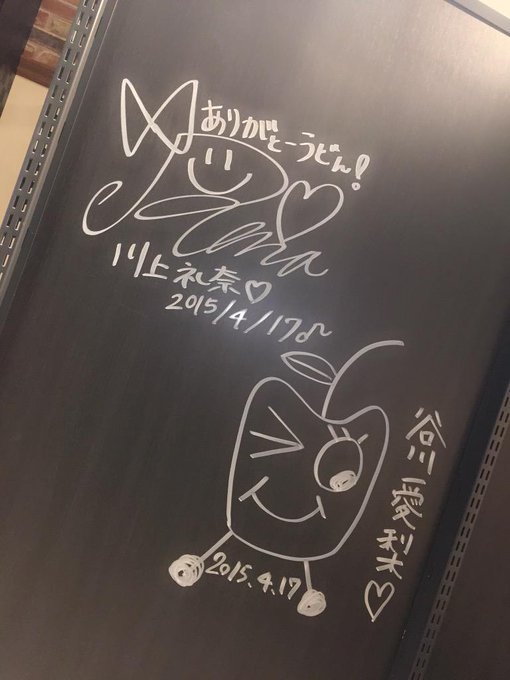 ありがとーうどん!
Rena
川上礼奈♡
2015/4/17♪
谷川愛梨♡
2015.4.17